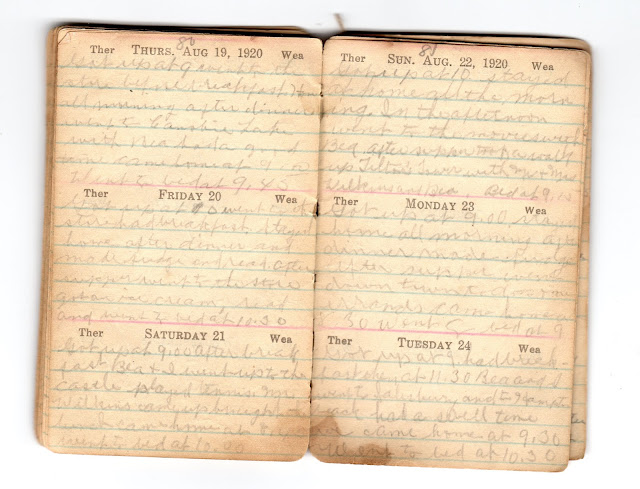 80
Ther THURS. AUG 19, 1920 Wea
Got up at 9 went to the
store before breakfast home
all morning after dinner
went to Canobie Lake
with Bea had a good
time came home at 9
went to bed at 9.45
Ther FRIDAY 20 Wea
Got up at 10 went to the
store had breakfast stayed
home after dinner and
made fudge and read. After
supper went to the store
got an ice cream, read
and went to bed at 10.30
Ther SATURDAY 21 Wea
Got up at 9.00 after break
fast Bea & I went up to the
castle played tennis. Mr.
Wilkins came up brought the
lunch came home at
went to bed at 10.00
81
Ther SUN. AUG. 22, 1920 Wea
Got up at 10 stayed
at home all the morn
ing. In the afternoon
went to the movies with
Bea, after supper a walk
up with Mr & Mrs
Wilkins and Bea. Bed at 9.
Ther MONDAY 23 Wea
Got up at 9.00 stay
home all morning after
dinner made fudge
after supper went
down town did some
errands came home at
8.30 went to bed at 9
Ther TUESDAY 24 Wea
Got up at 9 had break-
fast at 11.30 Bea and I
went to Salisbury and to Hampton
had a swell time
came home at 9.30
Went to bed at 10.30